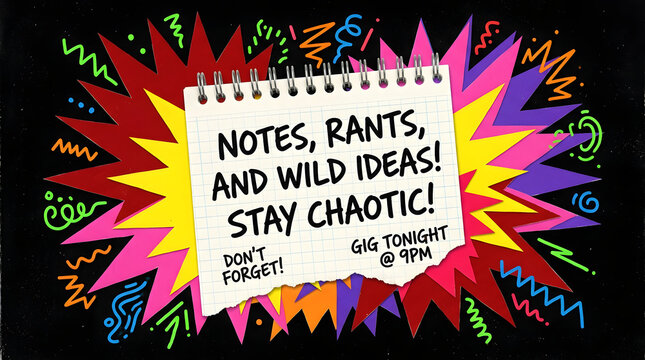 NOTES, RANTS,
AND WILD IDEAS!
STAY CHAOTIC!
DON'T
FORGET!
GIG TONIGHT
@ 9PM